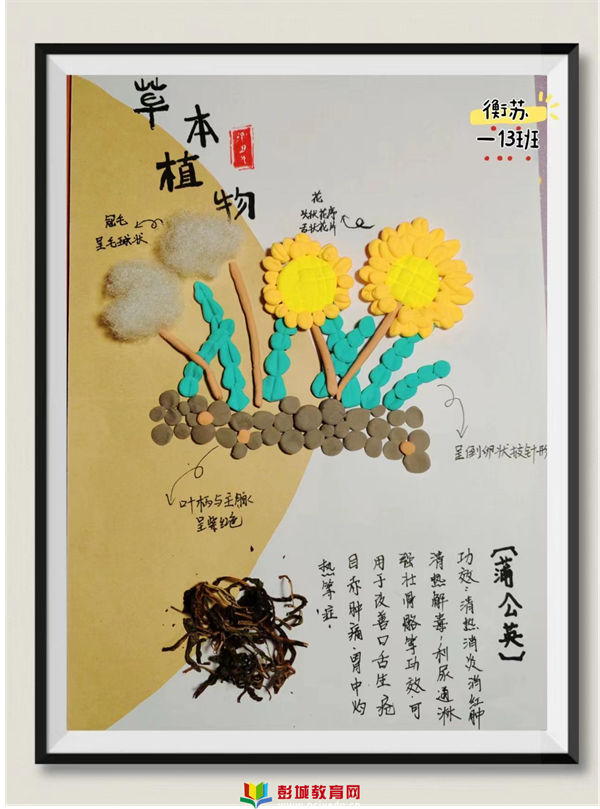 草本植物
衡苏
一13班
冠毛
呈毛球状
花
头状花序
舌状花片
呈倒卵状披针形
叶柄与主脉
呈紫红色
【蒲公英】
功效：清热消炎消红肿
清热解毒，利尿通淋
强壮骨骼等功效，可
用于改善口舌生疮
目赤肿痛、胃中灼
热等症。
彭城教育网